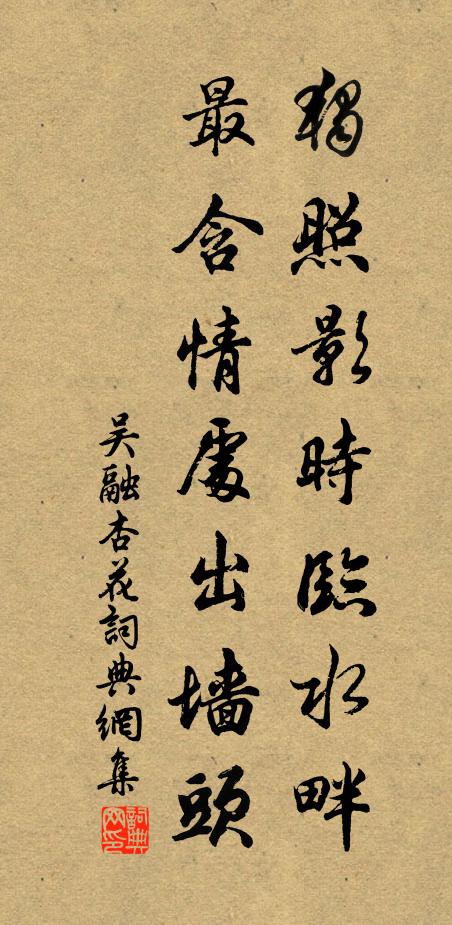 獨照影時臨水畔
最含情處出墻頭
吴融杏花詞典網集
詞典网印